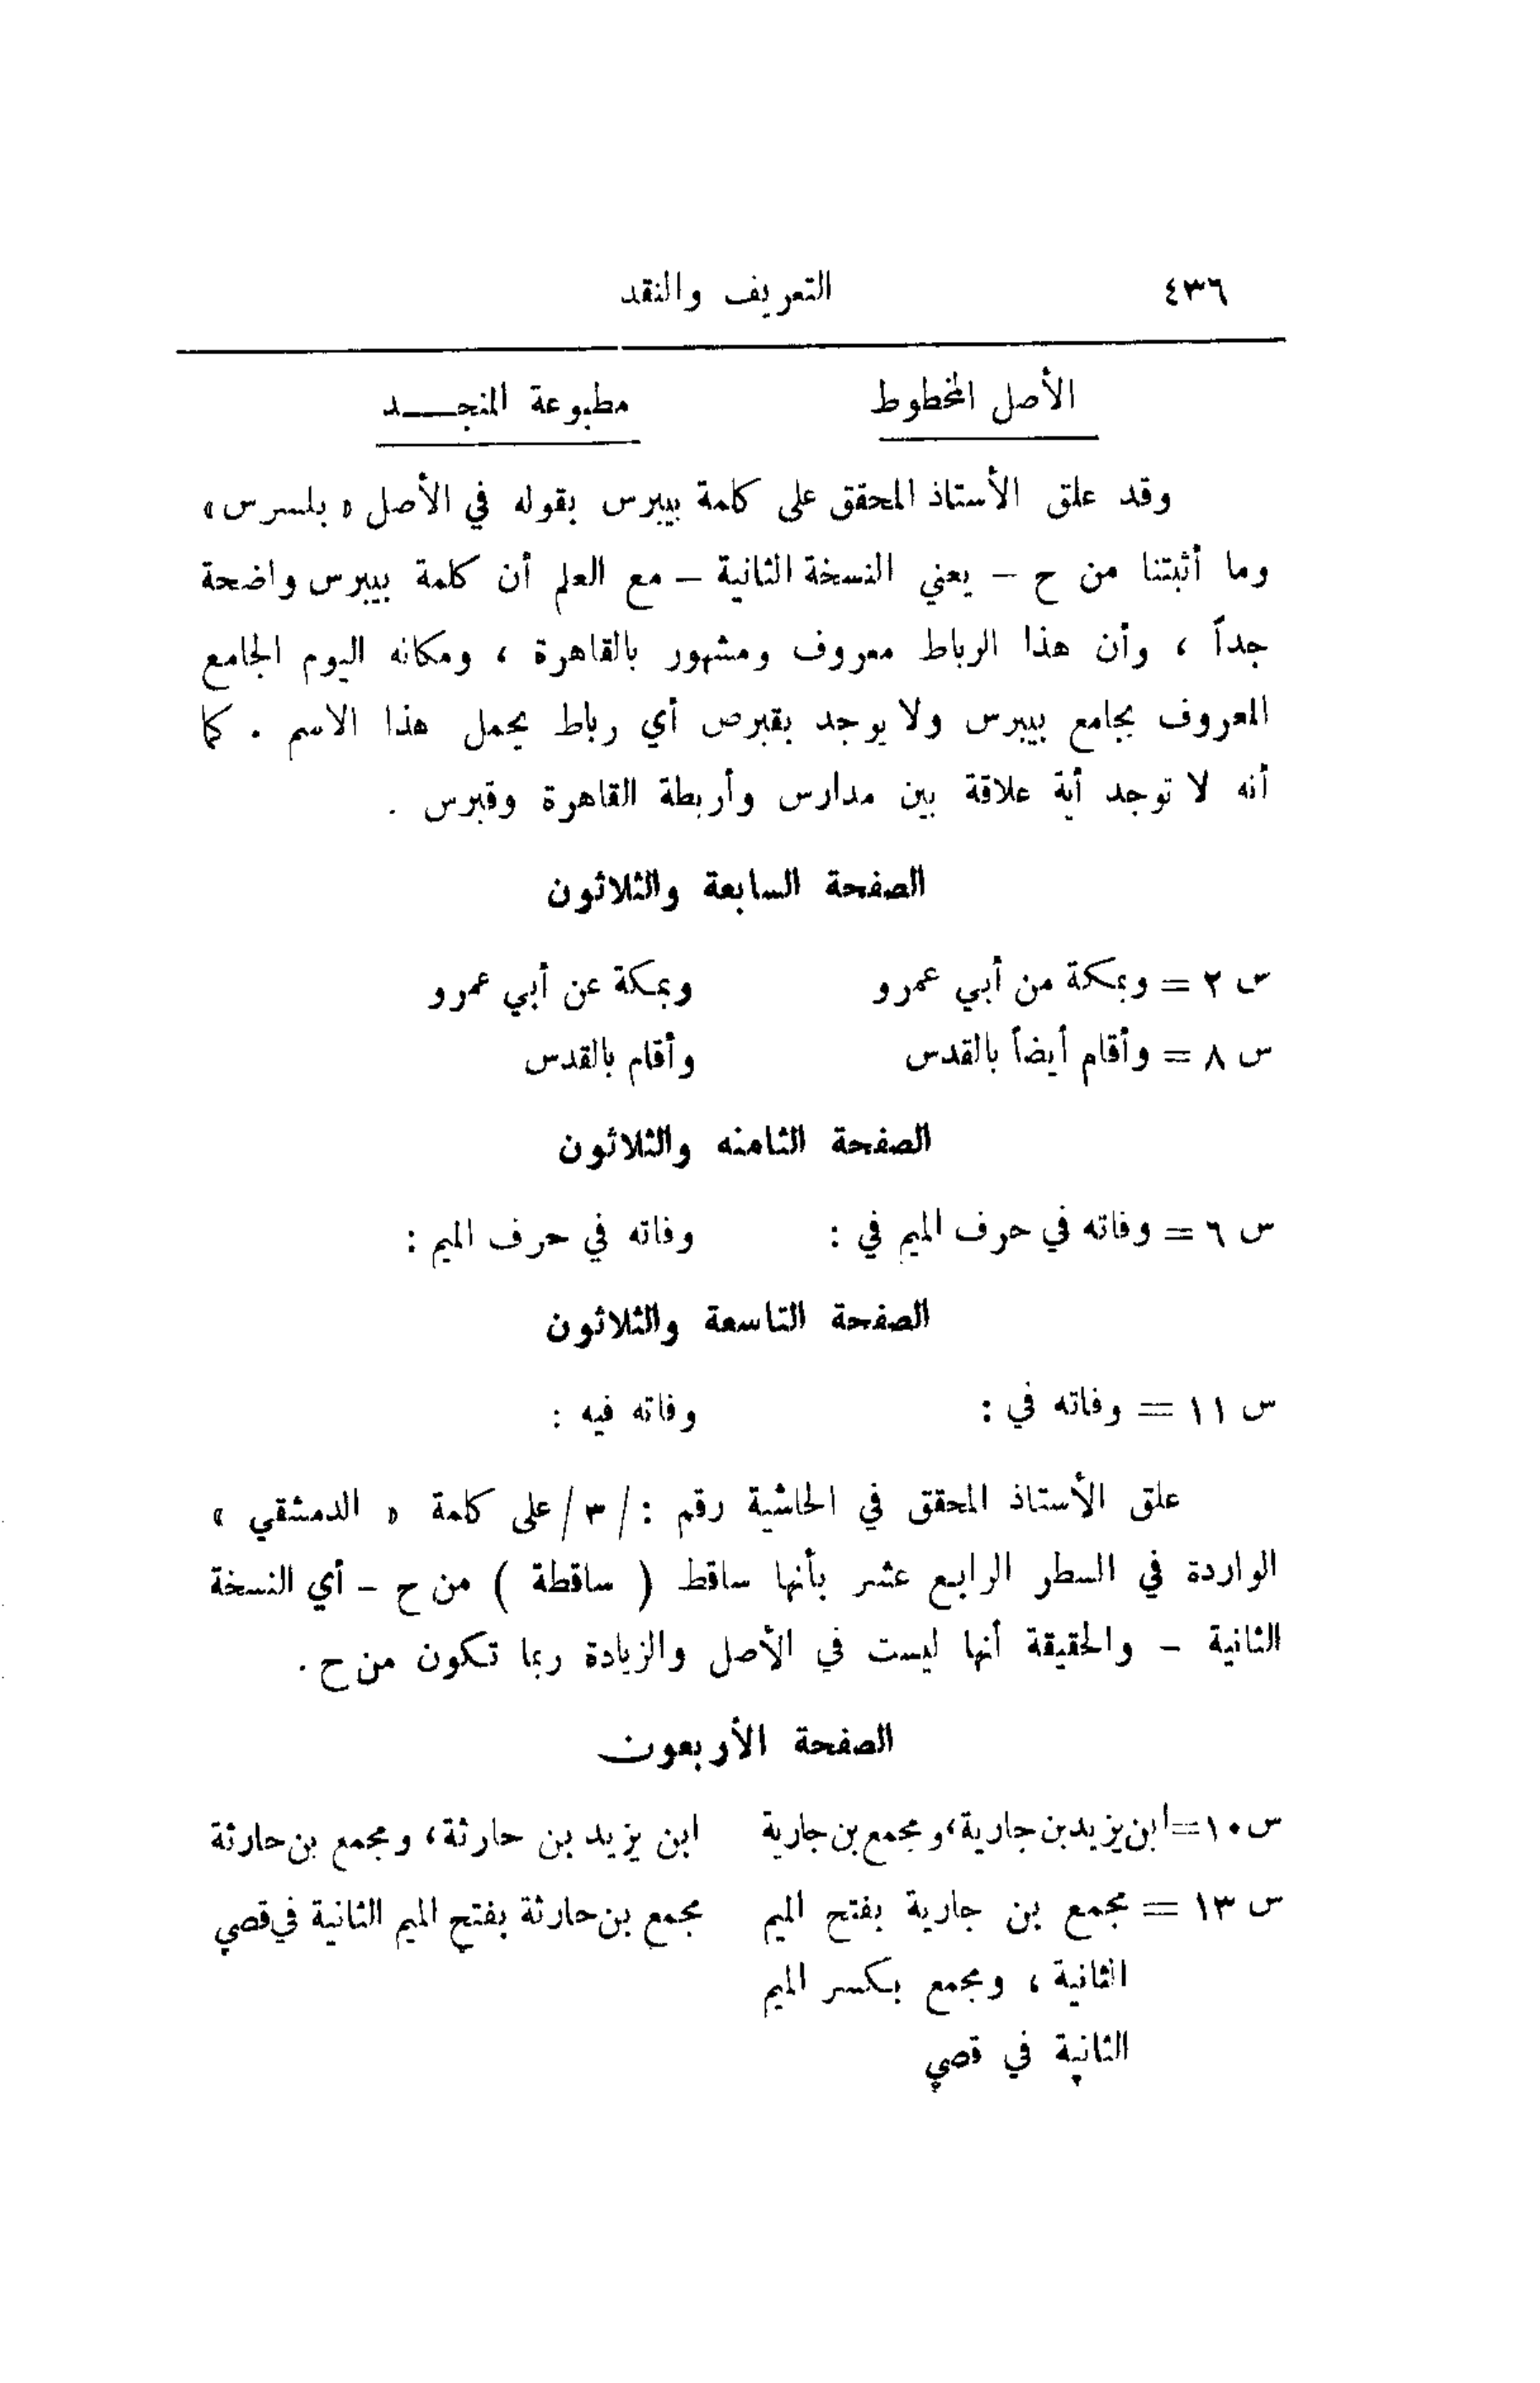 ٤٣٦ التعريف والنقد
الأصل المخطوط مطبوعة المنجـــد
وقد علق الأستاذ المحقق على كلمة بيبرس بقوله في الأصل « بلسرس »
وما أثبتنا من ح – يعني النسخة الثانية – مع العلم أن كلمة بيبرس واضحة
جداً ، وأن هذا الرباط معروف ومشهور بالقاهرة ، ومكانه اليوم الجامع
المعروف بجامع بيبرس ولا يوجد بقبرص أي رباط يحمل هذا الاسم . كما
أنه لا توجد أية علاقة بين مدارس وأربطة القاهرة وقبرس .
الصفحة السابعة والثلاثون
س ٢ = وبمكة من أبي عمرو وبمكة عن أبي عمرو
س ٨ = وأقام أيضاً بالقدس وأقام بالقدس
الصفحة الثامنه والثلاثون
س ٦ = وفاته في حرف الميم في : وفاته في حرف الميم :
الصفحة التاسعة والثلاثون
س ١١ = وفاته في : وفاته فيه :
علق الأستاذ المحقق في الحاشية رقم : /٣/ على كلمة « الدمشقي »
الواردة في السطر الرابع عشر بأنها ساقط ( ساقطة ) من ح – أي النسخة
الثانية – والحقيقة أنها ليست في الأصل والزيادة ربما تكون من ح .
الصفحة الأربعون
س ١٠ = ابن يزيد بن جارية، ومجمع بن جارية ابن يزيد بن حارثة، ومجمع بن حارثة
س ١٣ = مجمع بن جارية بفتح الميم مجمع بن حارثة بفتح الميم الثانية في قصي
الثانية ، ومجمع بكسر الميم
الثانية في قصي